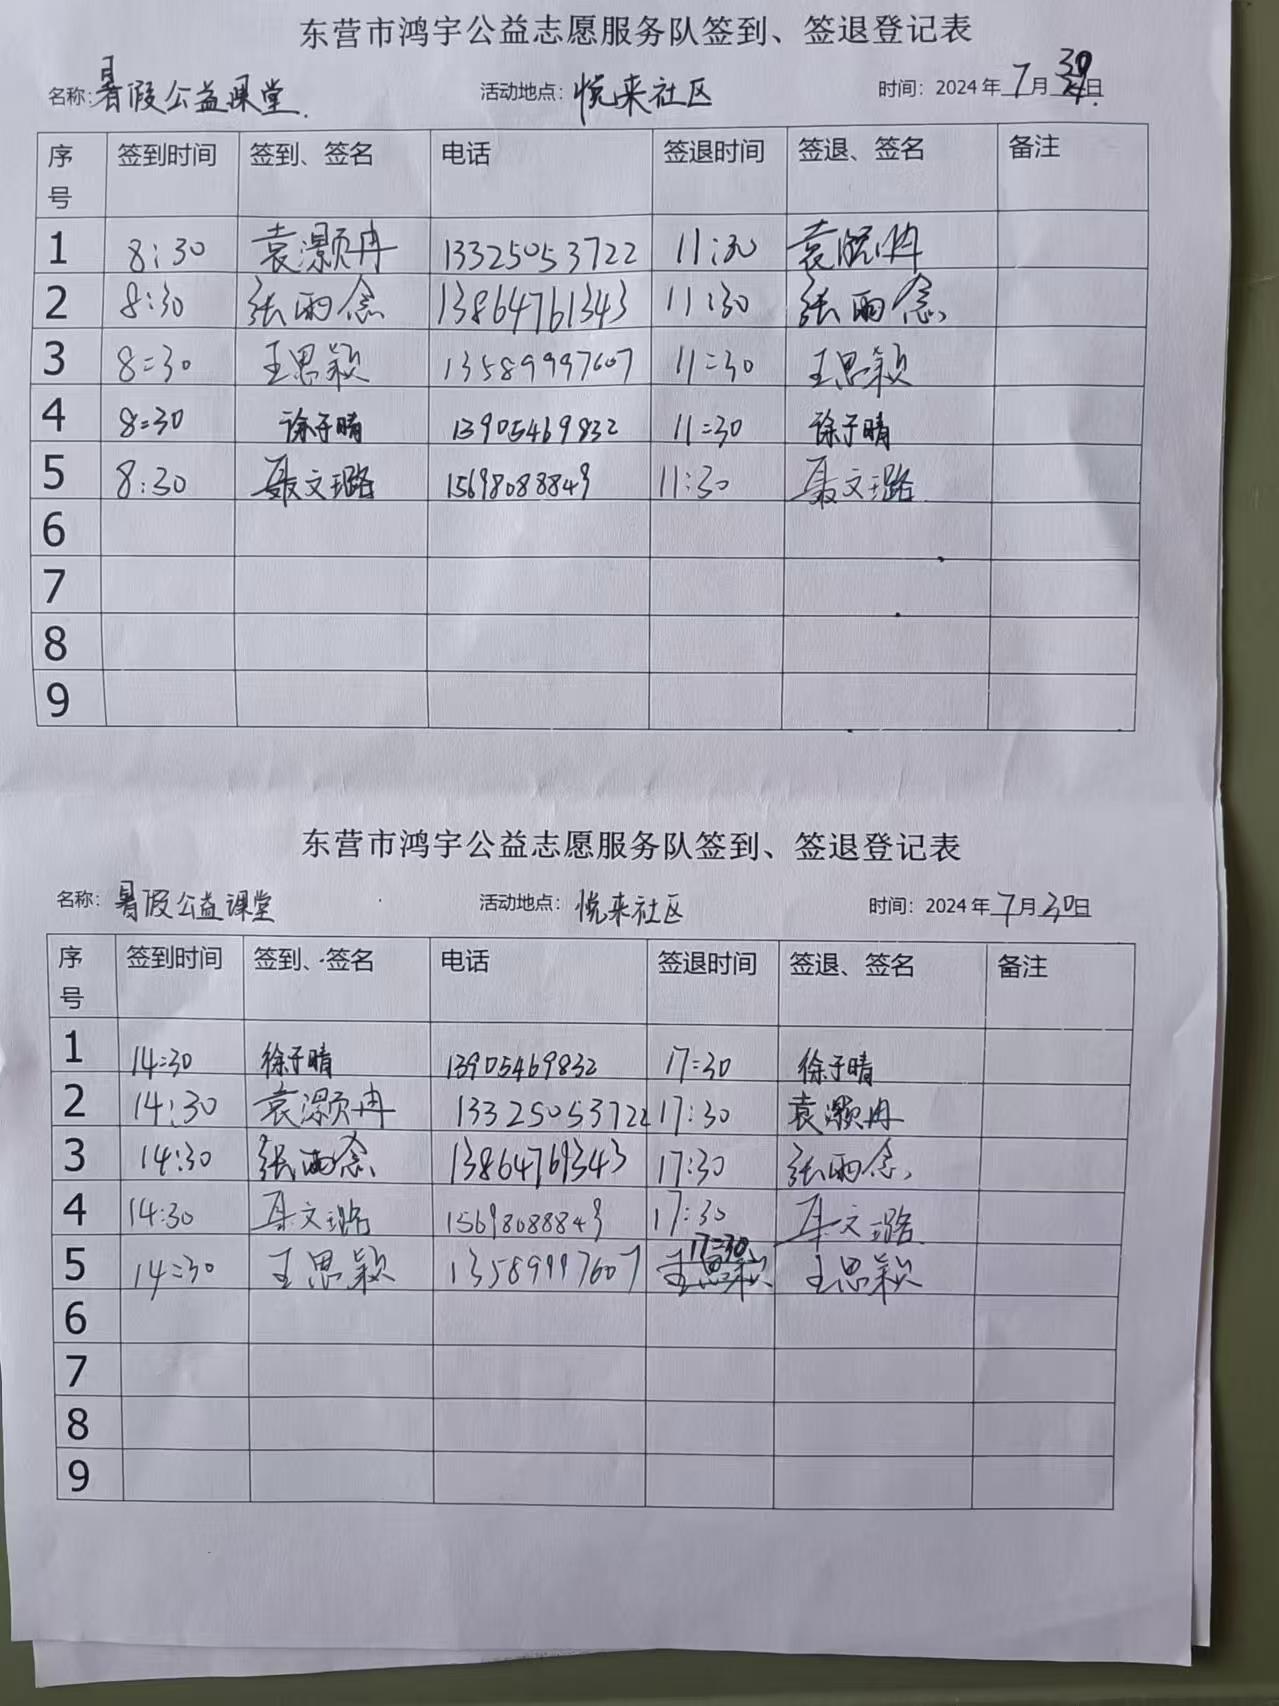 东营市鸿宇公益志愿服务队签到、签退登记表
名称：暑假公益课堂 活动地点：悦来社区 时间：2024年7月30日
序号 签到时间 签到、签名 电话 签退时间 签退、签名 备注
1 8:30 袁灏冉 13325053722 11:30 袁灏冉
2 8:30 张雨念 13864761343 11:30 张雨念
3 8:30 王思颖 13589997607 11:30 王思颖
4 8:30 徐子晴 13905469832 11:30 徐子晴
5 8:30 聂文璐 15698088849 11:30 聂文璐
6
7
8
9
东营市鸿宇公益志愿服务队签到、签退登记表
名称：暑假公益课堂 活动地点：悦来社区 时间：2024年7月30日
序号 签到时间 签到、签名 电话 签退时间 签退、签名 备注
1 14:30 徐子晴 13905469832 17:30 徐子晴
2 14:30 袁灏冉 13325053722 17:30 袁灏冉
3 14:30 张雨念 17:30 张雨念
4 14:30 聂文璐 15698088849 17:30 聂文璐
5 14:30 王思颖 13589997607 17:30 王思颖
6
7
8
9